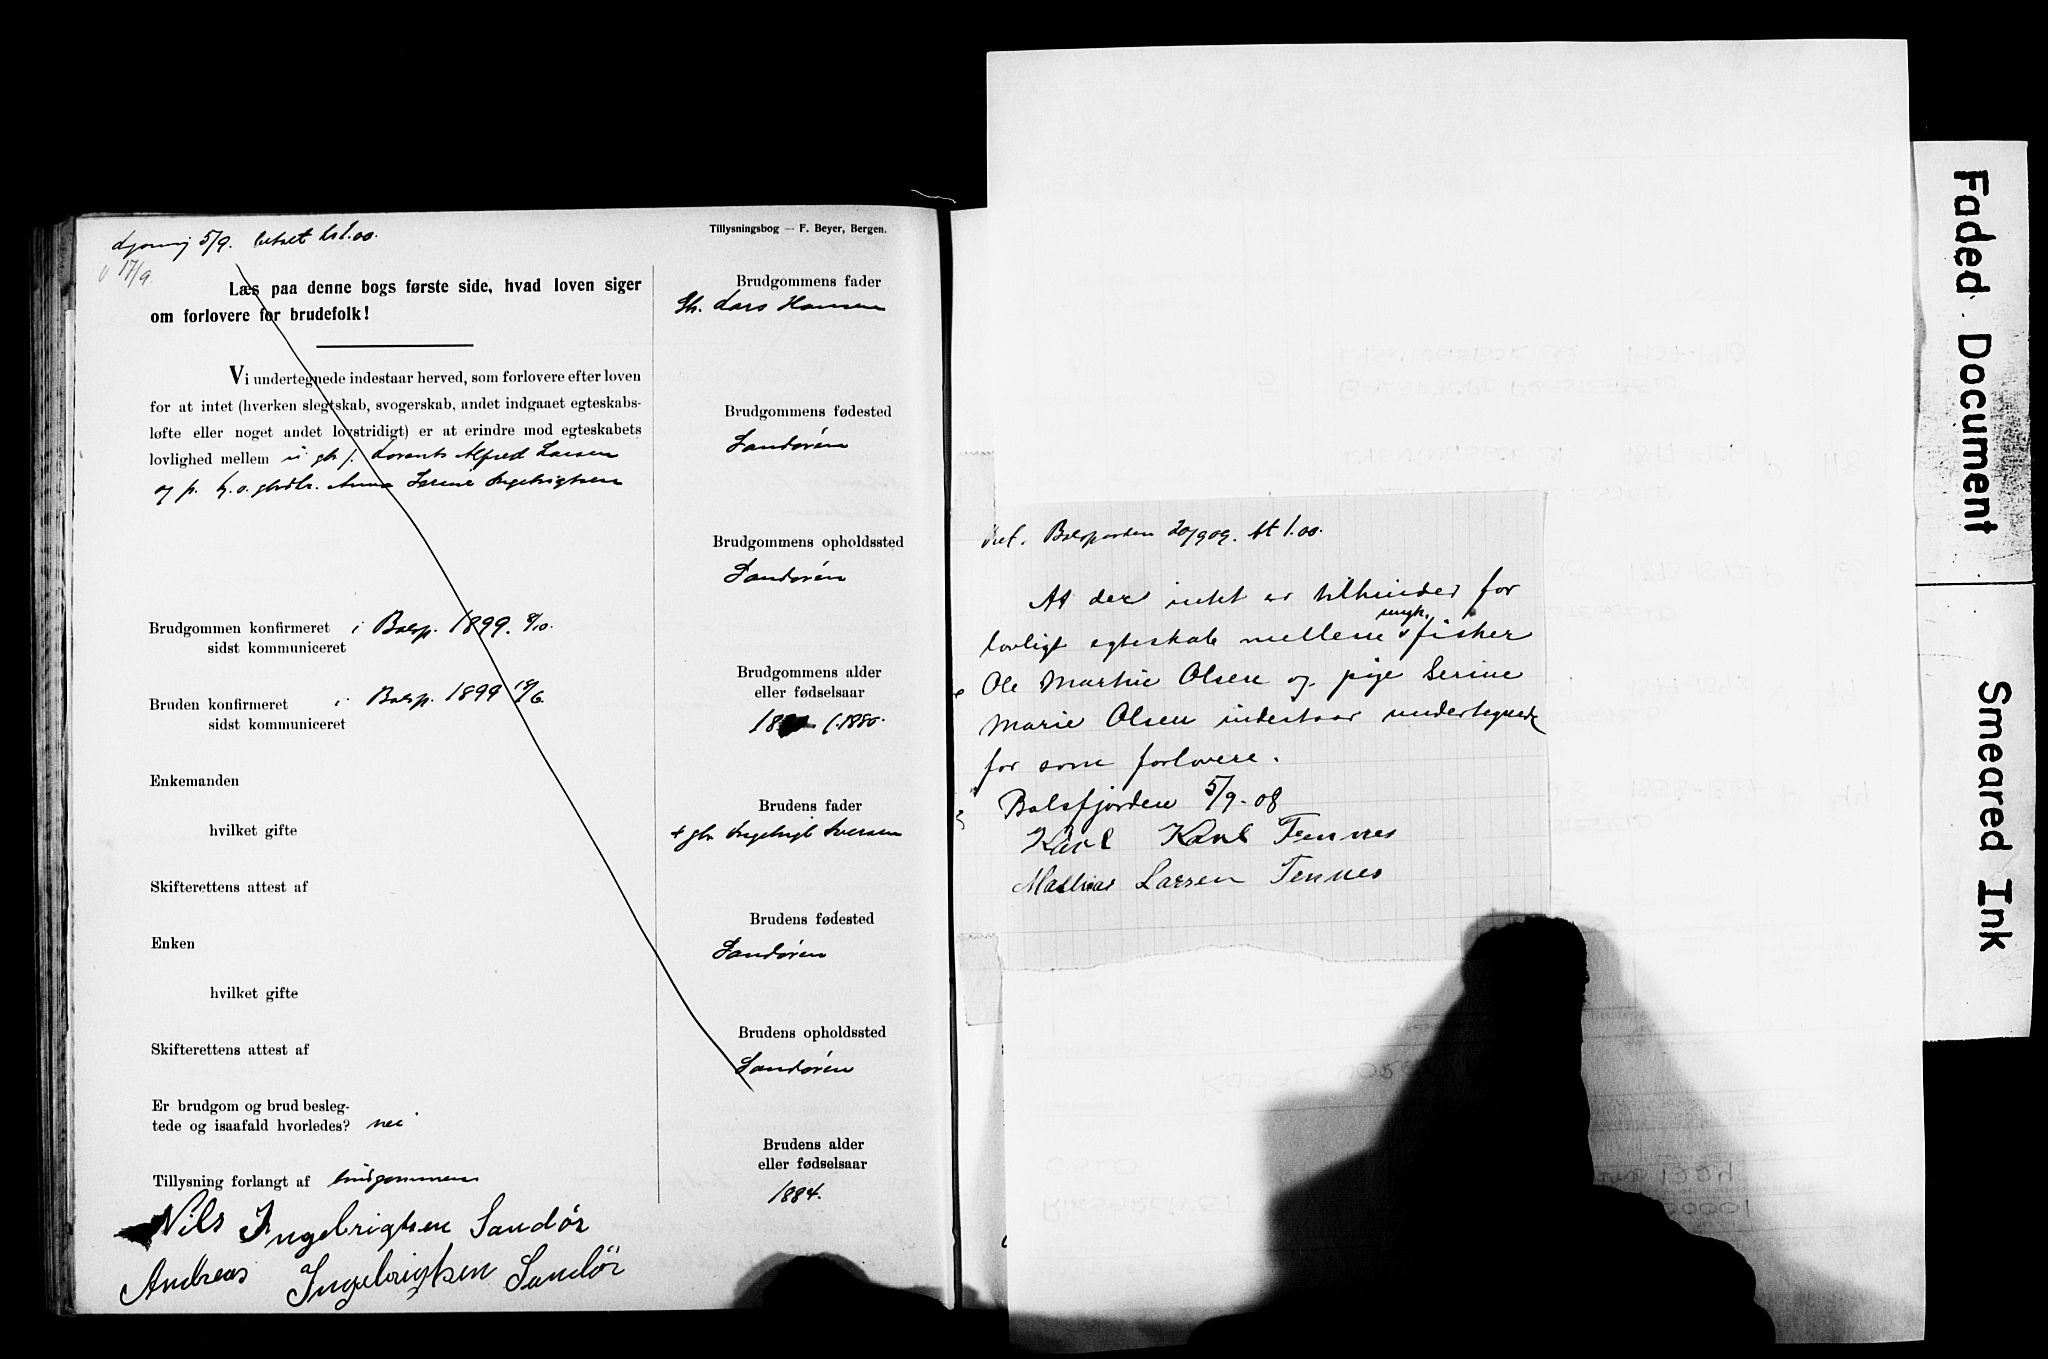 5/9. betalt kr 1.00.
17/9
Tillysningsbog — F. Beyer, Bergen.
Læs paa denne bogs første side, hvad loven siger
om forlovere for brudefolk!
Vi undertegnede indestaar herved, som forlovere efter loven
for at intet (hverken slegtskab, svogerskab, andet indgaaet egteskabs-
løfte eller noget andet lovstridigt) er at erindre mod egteskabets
lovlighed mellem Lorents Alfred Larsen
og p. Anna Serine Ingebrigtsen
Brudgommen konfirmeret i Balsfj. 1899. 8/10.
sidst kommuniceret
Bruden konfirmeret i Balsfj. 1899
sidst kommuniceret
Enkemanden
hvilket gifte
Skifterettens attest af
Enken
hvilket gifte
Skifterettens attest af
Er brudgom og brud besleg-
tede og isaafald hvorledes? nei
Tillysning forlangt af brudgommen
Nils Ingebrigtsen Sandør
Andreas Ingebrigtsen Sandør
Brudgommens fader
Lars Hansen
Brudgommens fødested
Sandøren
Brudgommens opholdssted
Sandøren
Brudgommens alder
eller fødselsaar
1880.
Brudens fader
Ingebrigt Iversen
Brudens fødested
Sandøren
Brudens opholdssted
Sandøren
Brudens alder
eller fødselsaar
1884.
20/9 09. kr 1.00.
At der intet er til hinder for
lovligt egteskab mellem ungk. fisker
Ole Martin Olsen og pige Serine
Marie Olsen indestaar undertegnede
for som forlovere.
Balsfjorden 5/9-08
Karl Karl Tennes
Mathias Larsen Tennes
Faded Document
Smeared Ink